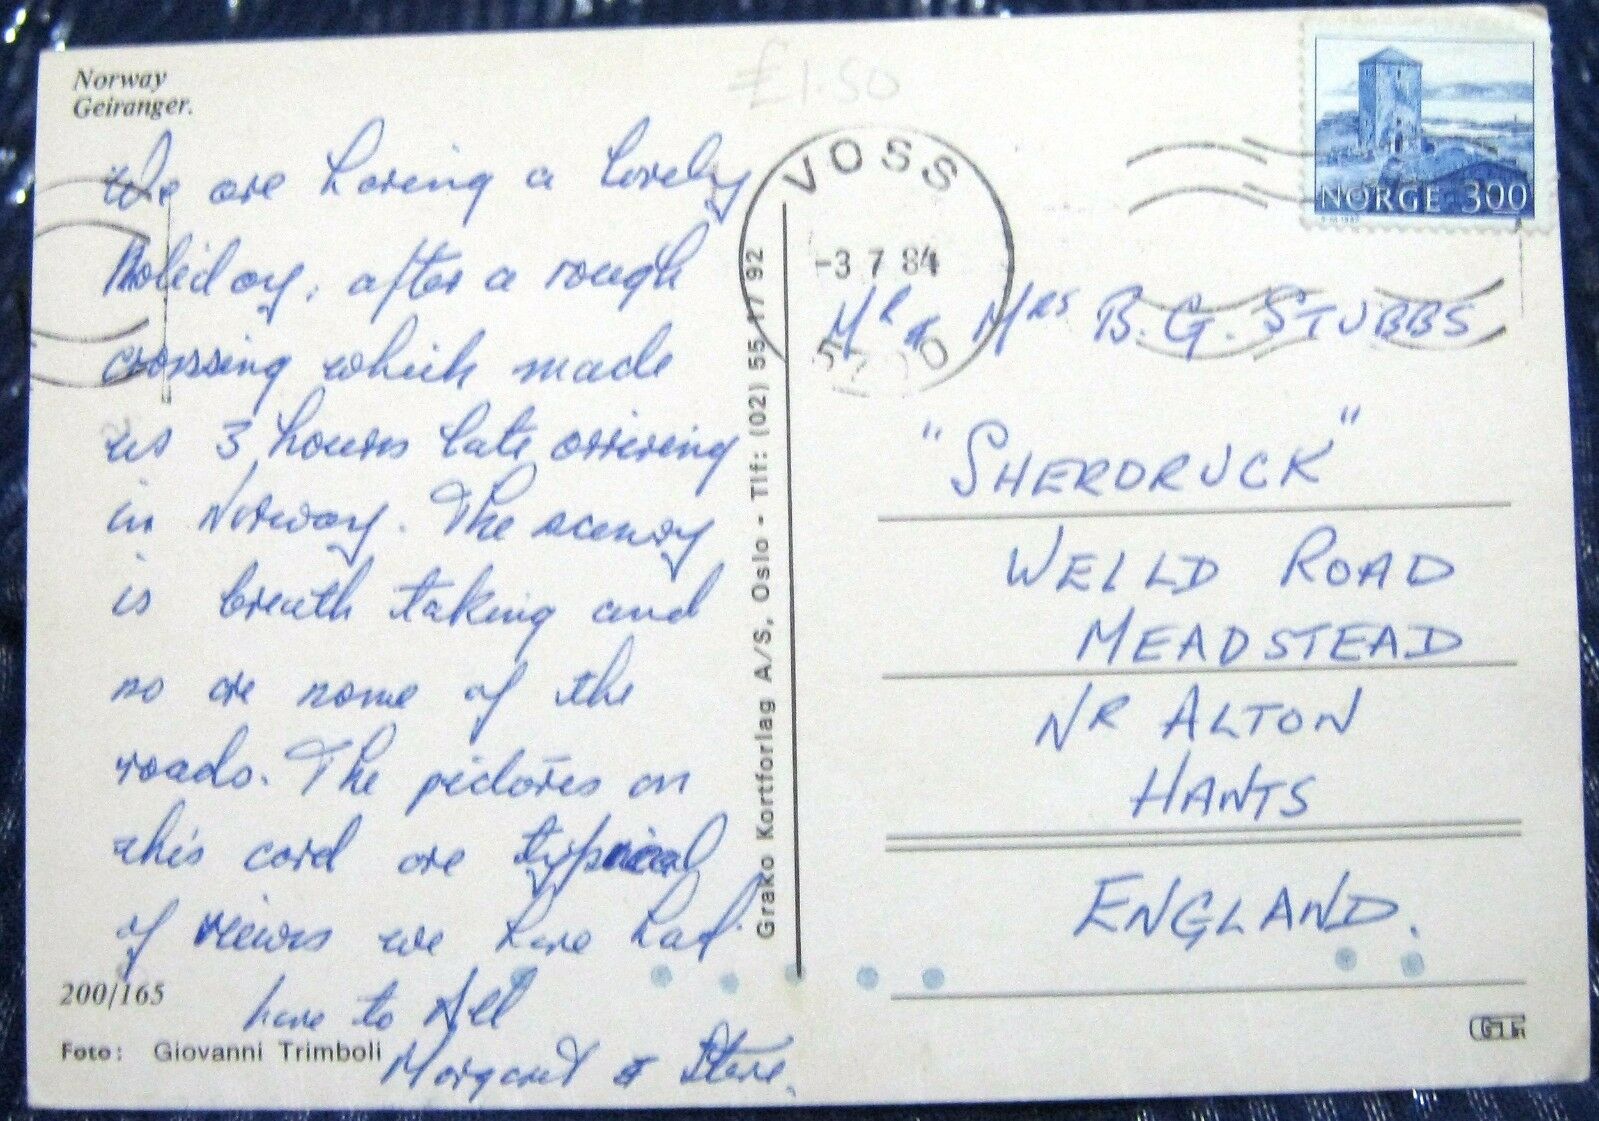 Norway
Geiranger.
£1.50
We are having a lovely
Holiday, after a rough
crossing which made
us 3 hours late arriving
in Norway. The scenery
is breath taking and
so are some of the
roads. The pictures on
this card are typical
of views we have had.
love to All
Margaret & Steve.
200/165
Foto: Giovanni Trimboli
Grako Kortforlag A/S, Oslo - Tlf: (02) 55 17 92
VOSS
-3 7 84
NORGE 300
Mr & Mrs B. G. STUBBS
"SHERDRUCK"
WELLD ROAD
MEADSTEAD
NR ALTON
HANTS
ENGLAND.